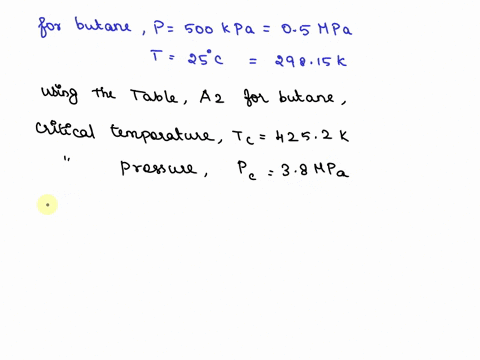 for butane, P = 500 kPa = 0.5 MPa
T = 25°C = 298.15K
using the Table, A2 for butane,
critical temperature, Tc = 425.2 K
" pressure, Pc = 3.8 MPa